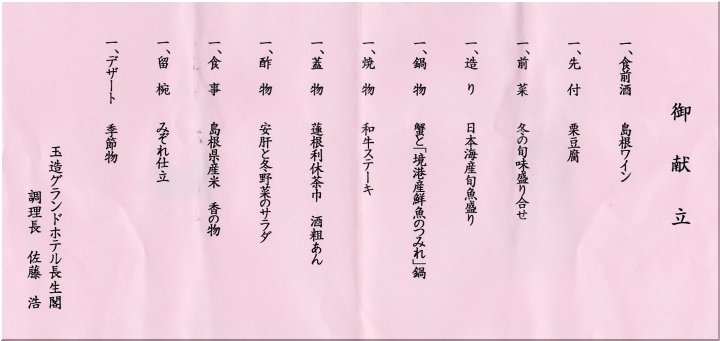 御献立
一、食前酒 島根ワイン
一、先付 栗豆腐
一、前菜 冬の旬味盛り合せ
一、造り 日本海産旬魚盛り
一、鍋物 蟹と「境港産鮮魚のつみれ」鍋
一、焼物 和牛ステーキ
一、蓋物 蓮根利休茶巾 酒粗あん
一、酢物 安肝と冬野菜のサラダ
一、食事 島根県産米 香の物
一、留椀 みぞれ仕立
一、デザート 季節物
玉造グランドホテル長生閣
調理長 佐藤 浩